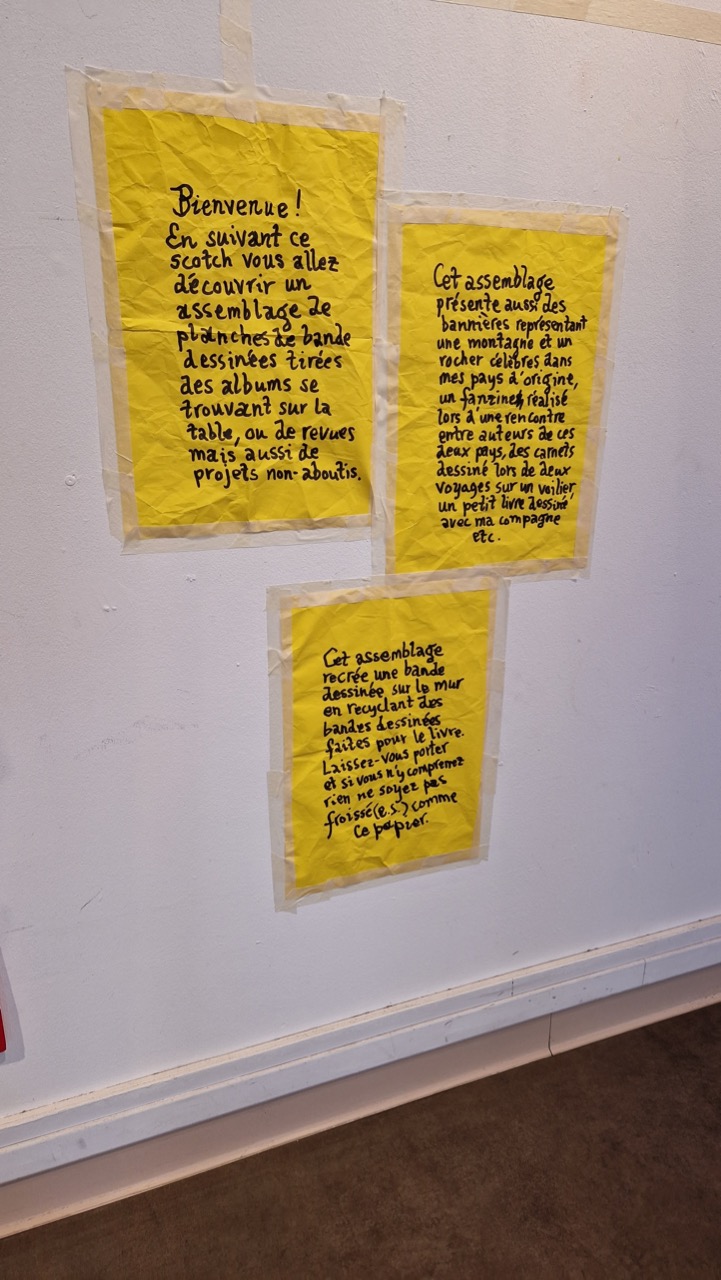 Bienvenue !
En suivant ce
scotch vous allez
découvrir un
assemblage de
planches de bande
dessinées tirées
des albums se
trouvant sur la
table, ou de revues
mais aussi de
projets non-aboutis.
Cet assemblage
présente aussi des
bannières représentant
une montagne et un
rocher célèbres dans
mes pays d'origine,
un fanzine, réalisé
lors d'une rencontre
entre auteurs de ces
deux pays, des carnets
dessiné lors de deux
voyages sur un voilier,
un petit livre dessiné
avec ma compagne
etc.
Cet assemblage
recrée une bande
dessinée sur le mur
en recyclant des
bandes dessinées
faites pour le livre.
Laissez-vous porter
et si vous n'y comprenez
rien ne soyez pas
froissé(e.s.) comme
ce papier.